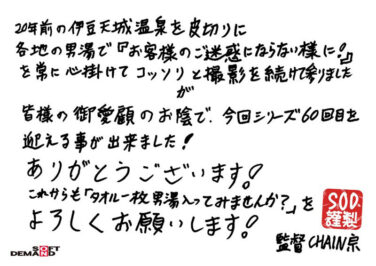 20年前の伊豆天城温泉を皮切りに
各地の男湯で『お客様のご迷惑にならない様に!』
を常に心掛けてコッソリと撮影を続けて参りました
が
皆様の御愛顧のお陰で、今回シリーズ60回目を
迎える事が出来ました!
ありがとうございます!
これからも「タオル一枚男湯入ってみませんか?」を
よろしくお願いします!
SOD
謹製
監督 CHAIN宗
SOFT
DEMAND